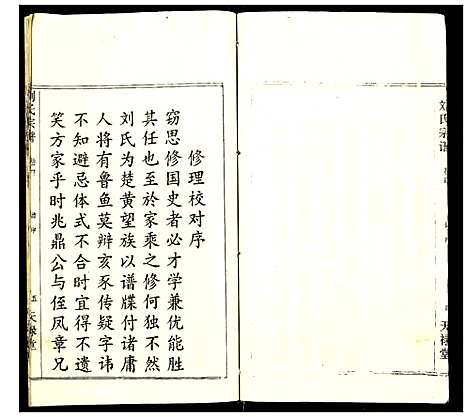 劉氏宗譜
天祿堂
修理校对序
窃思修国史者必才学兼优能胜
其任也至於家乘之修何独不然
刘氏为楚黄望族以谱牒付诸庸
人将有鲁鱼莫辩亥豕传疑字讳
不知避忌体式不合时宜得不遗
笑方家乎时兆鼎公与侄凤章兄
刘氏宗谱
五
天禄堂